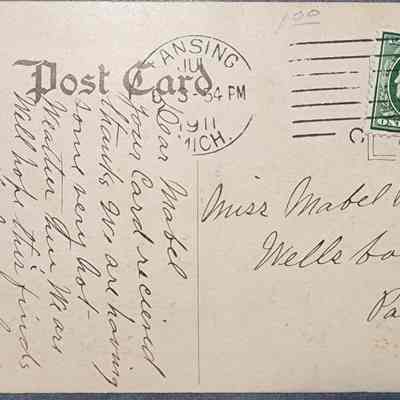 1.00
Post Card
LANSING
JU
3-34 PM
1911
MICH.
ONE
Dear Mabel
your Card reciend
thanks We are having
some very hot
Weather here
Well hope this finds
Miss Mabel
Wellsbo
Pa